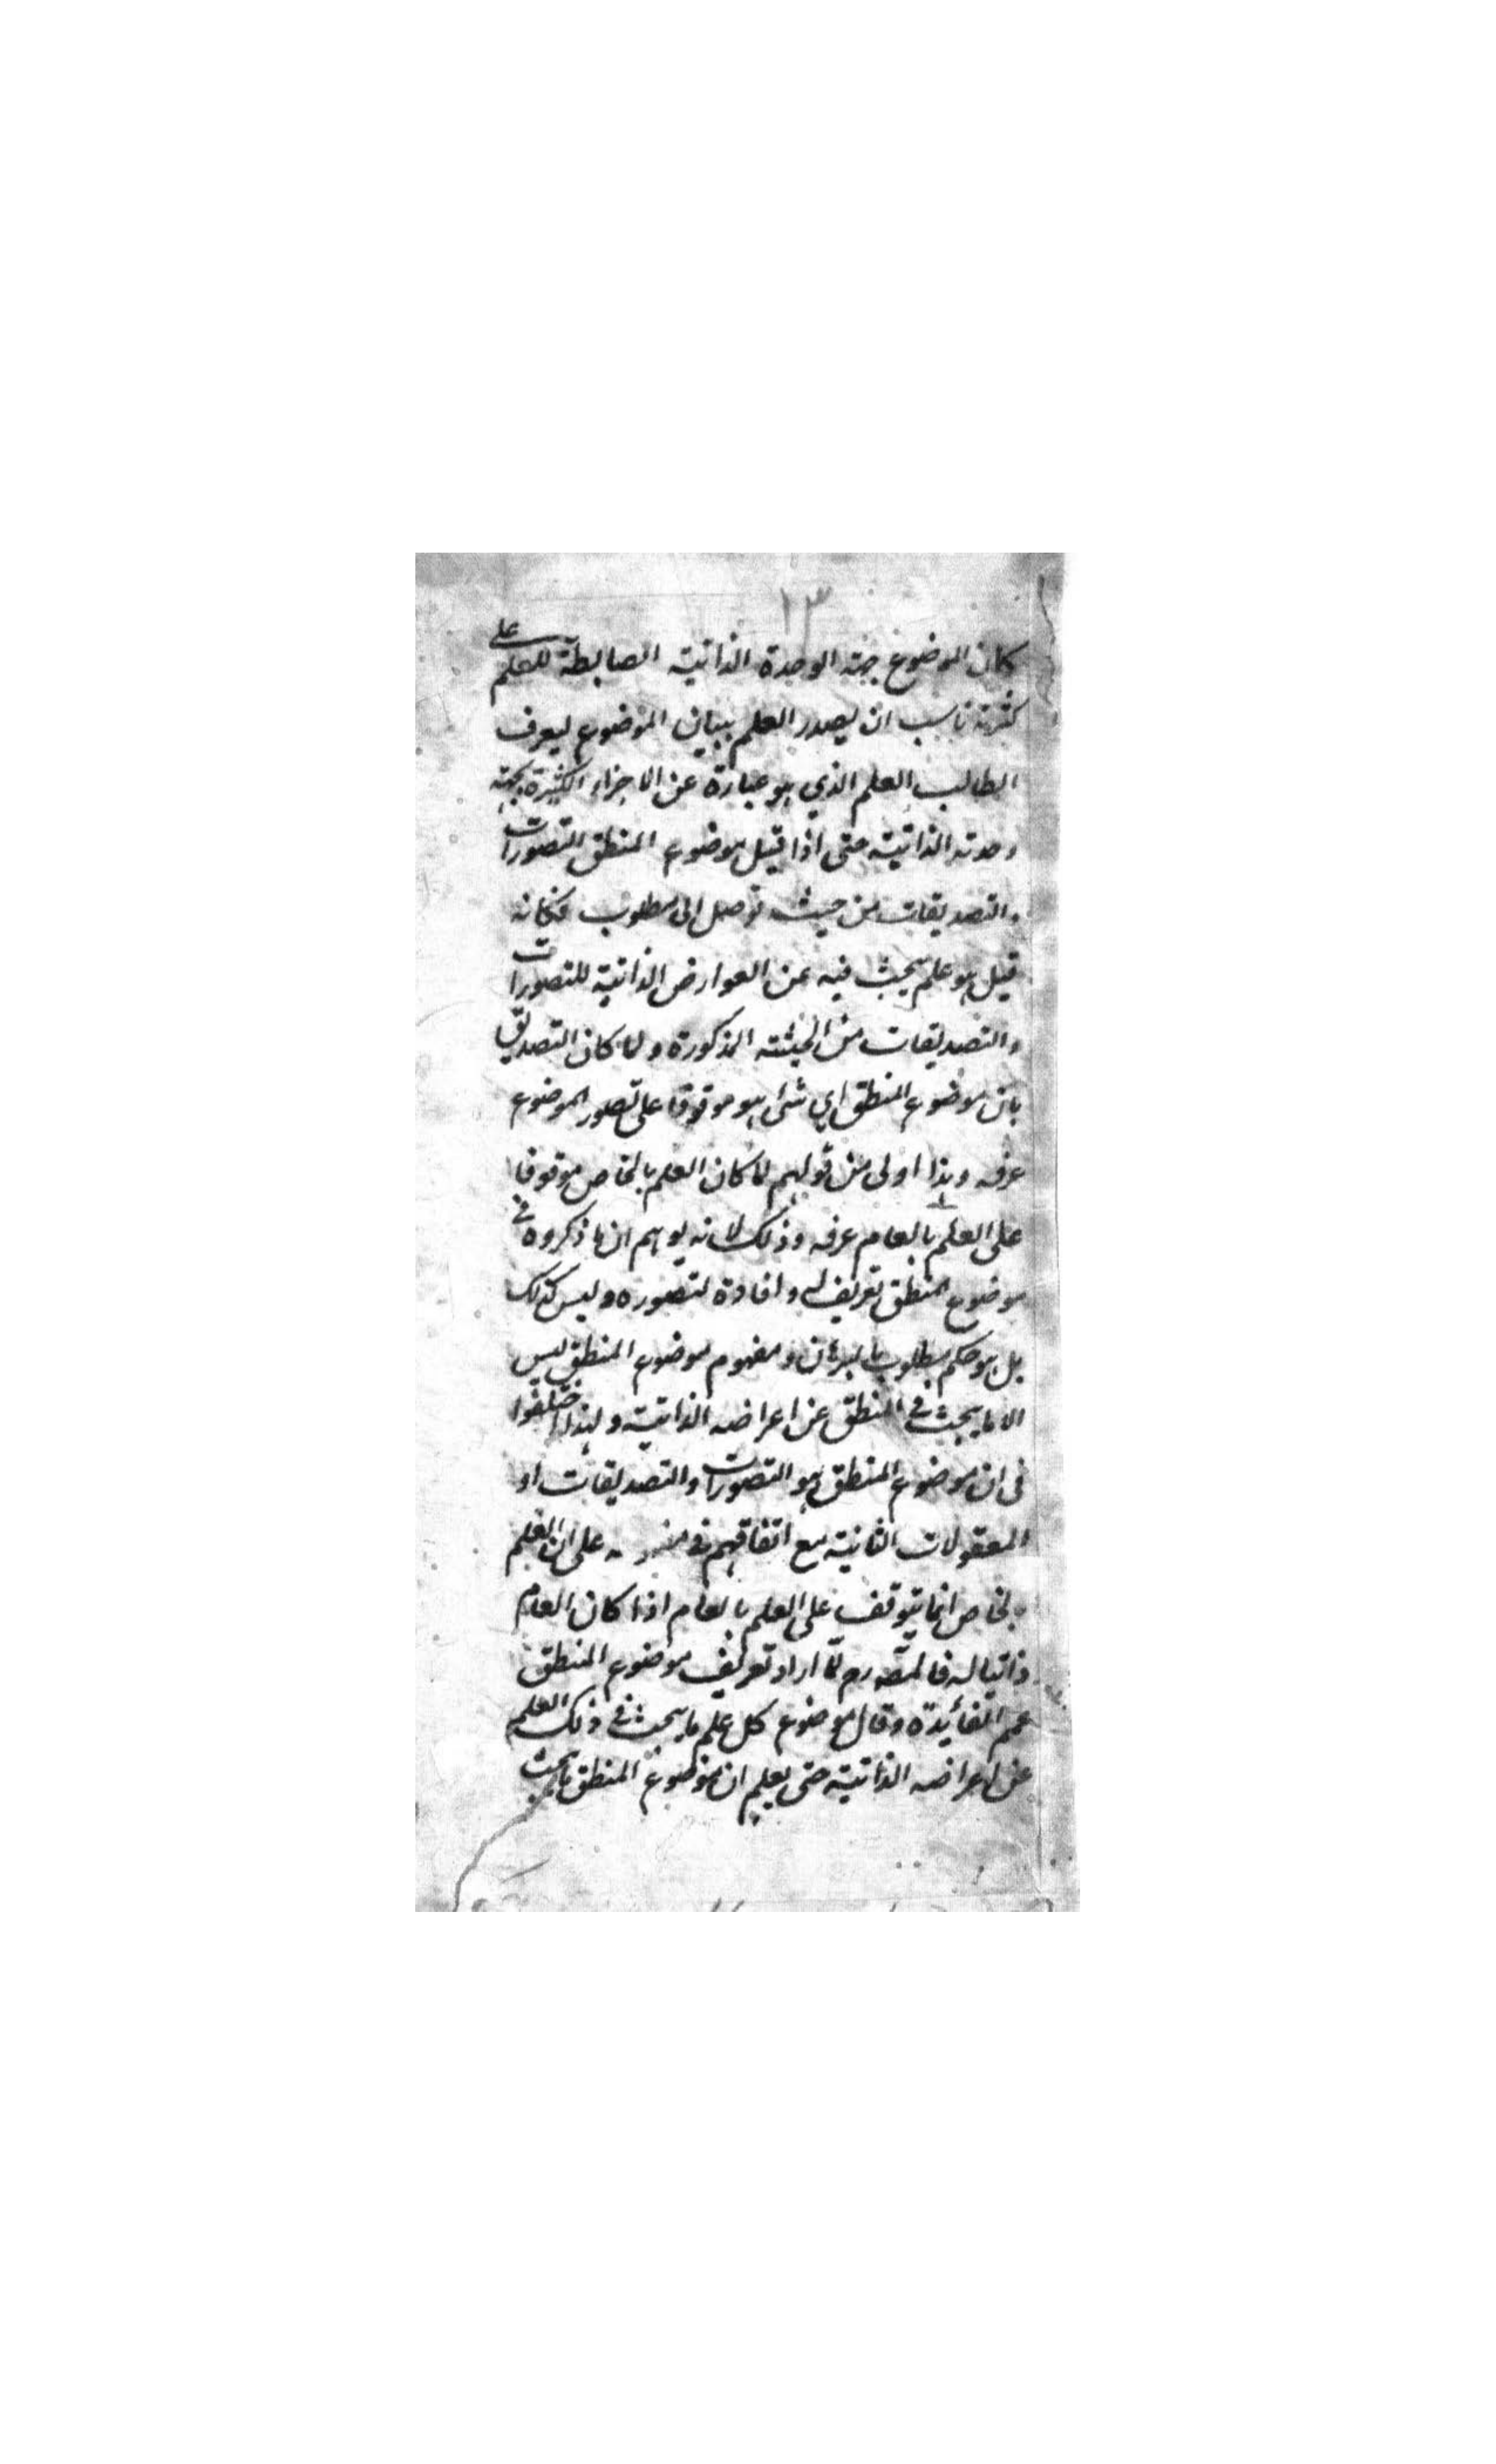 ١٣
كان الموضوع جهة الوحدة الذاتية الضابطة للعلم على
كثرته ناسب ان يصدر العلم ببيان الموضوع ليعرف
الطالب العلم الذي هو عبارة عن الاجزاء الكثيرة بجهة
وحدته الذاتية حتى اذا قيل موضوع المنطق التصورات
والتصديقات من حيث توصل الى مطلوب فكانه
قيل هو علم يبحث فيه عن العوارض الذاتية للتصورات
والتصديقات من الحيثية المذكورة ولما كان التصديق
بان موضوع المنطق اي شئ هو موقوفا على تصور الموضوع
عرفه وهذا اولى من قولهم لما كان العلم بالخاص موقوفا
على العلم بالعام عرفه وذلك لانه يوهم ان ما ذكروه في
موضوع المنطق تعريف له وافادة لتصوره وليس كذلك
بل هو حكم مطلوب بالبرهان ومفهوم موضوع المنطق ليس
الا ما يبحث في المنطق عن اعراضه الذاتية ولهذا اختلفوا
في ان موضوع المنطق هو التصورات والتصديقات او
المعقولات الثانية مع اتفاقهم في على ان العلم
بالخاص انما يتوقف على العلم بالعام اذا كان العام
ذاتيا له فالمصّ رح لمّا اراد تعريف موضوع المنطق
عمم الفائدة وقال موضوع كل علم ما يبحث في ذلك العلم
عن اعراضه الذاتية حتى يعلم ان موضوع المنطق ما يبحث